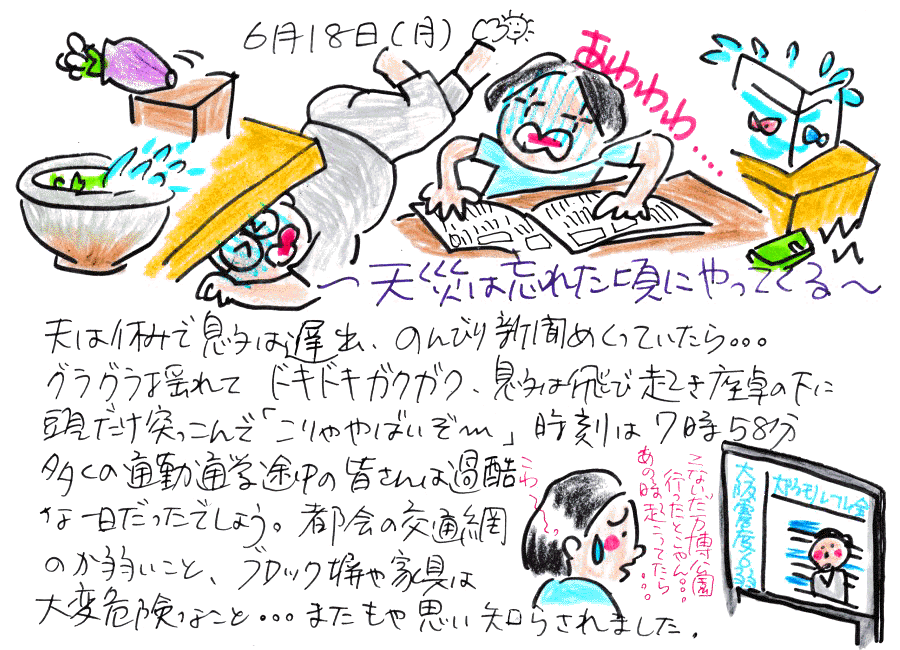 6月18日(月)
あわわわ・・・・
〜天災は忘れた頃にやってくる〜
夫は休みで息子は遅出、のんびり新聞めくっていたら・・・
グラグラ揺れて ドキドキガクガク、息子は飛び起き座卓の下に
頭だけ突っこんで「こりゃやばいぞ〜」時刻は7時58分
多くの通勤通学途中の皆さんは過酷
な一日だったでしょう。都会の交通網
のか弱いこと、ブロック塀や家具は
大変危険なこと・・・またもや思い知らされました。
こわ〜〜〜
こないだ万博公園
行ったとこやん・・・
あの時起こってたら
・・・
大阪震度6弱
大阪モノレール全